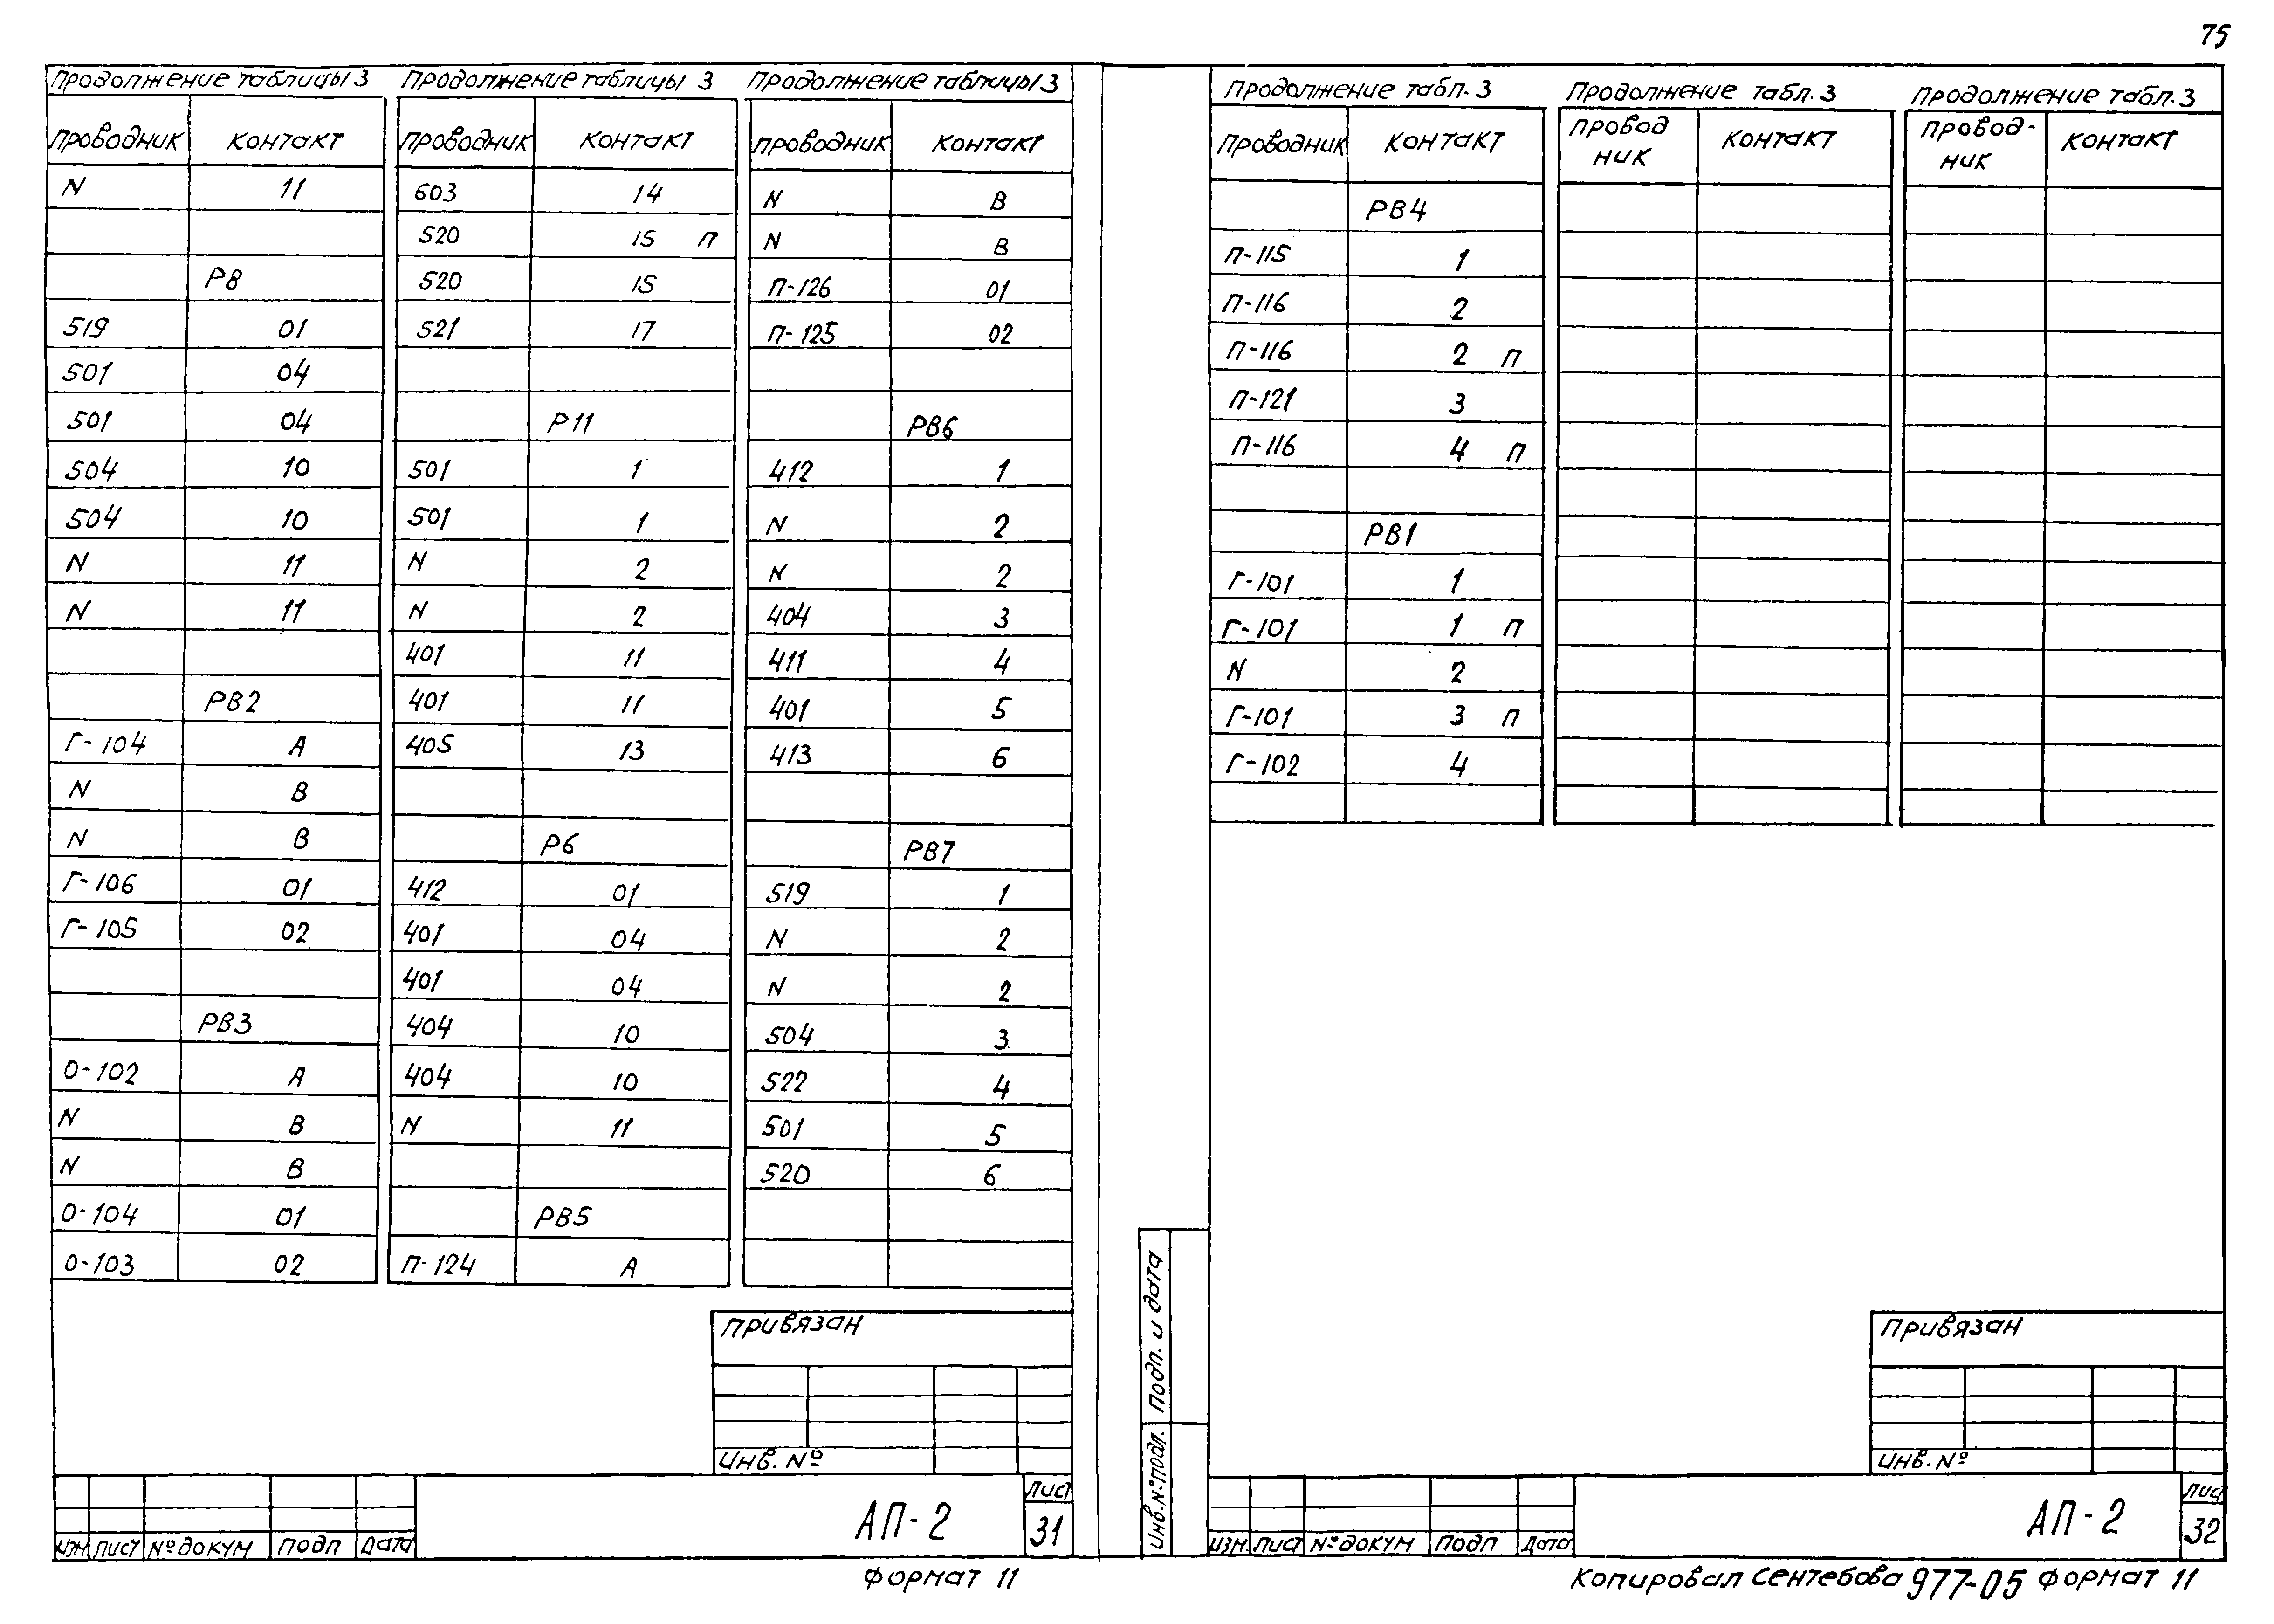 75
Продолжение таблицы 3
Проводник Контакт
N 11
Р8
519 01
501 04
501 04
504 10
504 10
N 11
N 11
РВ2
Г-104 А
N В
N В
Г-106 01
Г-105 02
РВ3
0-102 А
N В
N В
0-104 01
0-103 02
Продолжение таблицы 3
Проводник Контакт
603 14
520 15 П
520 15
521 17
Р11
501 1
501 1
N 2
N 2
401 11
401 11
405 13
Р6
412 01
401 04
401 04
404 10
404 10
N 11
РВ5
П-124 А
Продолжение таблицы 3
Проводник Контакт
N В
N В
П-126 01
П-125 02
РВ6
412 1
N 2
N 2
404 3
411 4
401 5
413 6
РВ7
519 1
N 2
N 2
504 3
522 4
501 5
520 6
Привязан
Инв. №
Изм Лист № докум Подп Дата
АП-2
Лист
31
Формат 11
Продолжение табл. 3
Проводник Контакт
РВ4
П-115 1
П-116 2
П-116 2 П
П-121 3
П-116 4 П
РВ1
Г-101 1
Г-101 1 П
N 2
Г-101 3 П
Г-102 4
Продолжение табл. 3
Провод
ник
Контакт
Продолжение табл. 3
Провод-
ник
Контакт
Подп. и дата
Инв. № подл.
Привязан
Инв. №
Изм. Лист № докум Подп Дата
АП-2
Лис
32
Копировал Сентебова 977-05 Формат 11